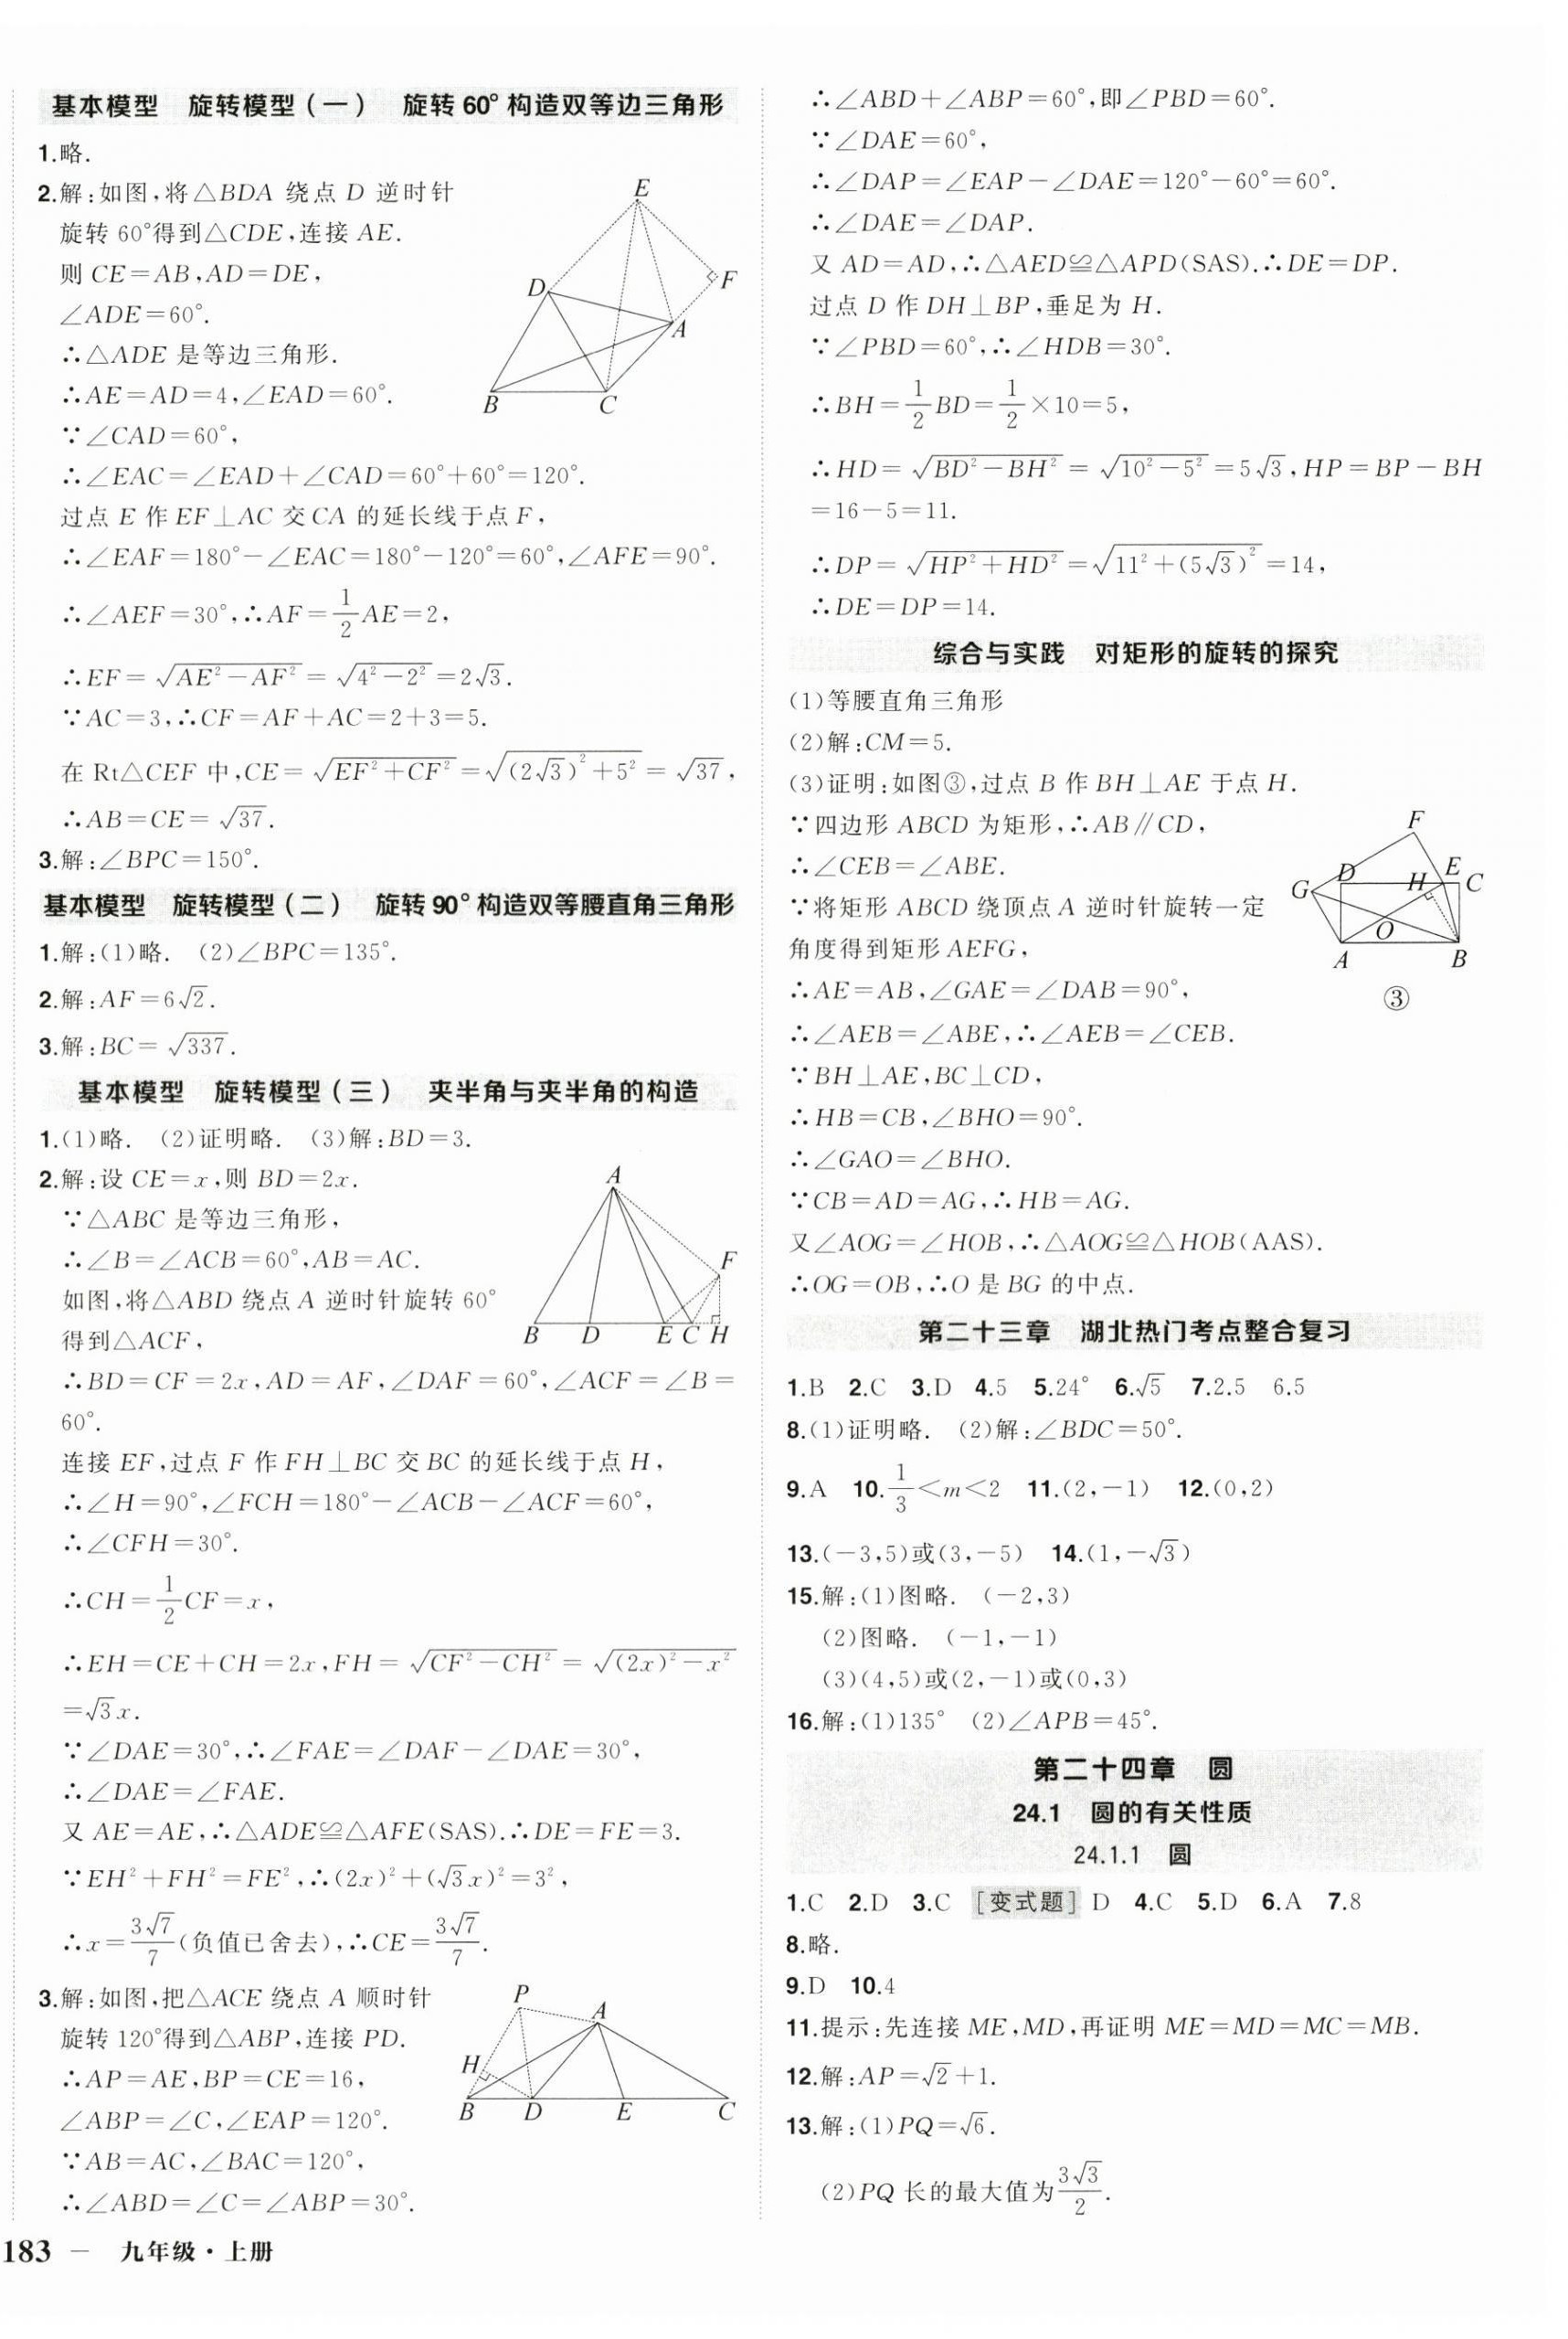 基本模型 旋转模型(一) 旋转60°构造双等边三角形
1.略.
2.解:如图,将△BDA 绕点 D 逆时针
旋转60°得到△CDE,连接 AE.
则 CE=AB,AD=DE,
∠ADE=60°.
∴△ADE 是等边三角形.
∴AE=AD=4,∠EAD=60°.
∵∠CAD=60°,
∴∠EAC=∠EAD+∠CAD=60°+60°=120°.
过点 E 作 EF⊥AC 交 CA 的延长线于点 F,
∴∠EAF=180°-∠EAC=180°-120°=60°,∠AFE=90°.
∴∠AEF=30°,∴AF=1/2AE=2,
∴EF=√(AE²-AF²)=√(4²-2²)=2√3.
∵AC=3,∴CF=AF+AC=2+3=5.
在 Rt△CEF 中,CE=√(EF²+CF²)=√((2√3)²+5²)=√37,
∴AB=CE=√37.
E
D
F
A
B
C
3.解:∠BPC=150°.
基本模型 旋转模型(二) 旋转90°构造双等腰直角三角形
1.解:(1)略. (2)∠BPC=135°.
2.解:AF=6√2.
3.解:BC=√337.
基本模型 旋转模型(三) 夹半角与夹半角的构造
1.(1)略. (2)证明略. (3)解:BD=3.
2.解:设 CE=x,则 BD=2x.
∵△ABC 是等边三角形,
∴∠B=∠ACB=60°,AB=AC.
如图,将△ABD 绕点 A 逆时针旋转60°
得到△ACF,
A
F
B D E C H
∴BD=CF=2x,AD=AF,∠DAF=60°,∠ACF=∠B=
60°.
连接 EF,过点 F 作 FH⊥BC 交 BC 的延长线于点 H,
∴∠H=90°,∠FCH=180°-∠ACB-∠ACF=60°,
∴∠CFH=30°.
∴CH=1/2CF=x,
∴EH=CE+CH=2x,FH=√(CF²-CH²)=√((2x)²-x²)
=√3x.
∵∠DAE=30°,∴∠FAE=∠DAF-∠DAE=30°,
∴∠DAE=∠FAE.
又 AE=AE,∴△ADE≌△AFE(SAS).∴DE=FE=3.
∵EH²+FH²=FE²,∴(2x)²+(√3x)²=3²,
∴x=3√7/7(负值已舍去),∴CE=3√7/7.
3.解:如图,把△ACE 绕点 A 顺时针
旋转120°得到△ABP,连接 PD.
∴AP=AE,BP=CE=16,
∠ABP=∠C,∠EAP=120°.
∵AB=AC,∠BAC=120°,
∴∠ABD=∠C=∠ABP=30°.
P
A
H
B D E C
183 — 九年级·上册
∴∠ABD+∠ABP=60°,即∠PBD=60°.
∵∠DAE=60°,
∴∠DAP=∠EAP-∠DAE=120°-60°=60°.
∴∠DAE=∠DAP.
又 AD=AD,∴△AED≌△APD(SAS).∴DE=DP.
过点 D 作 DH⊥BP,垂足为 H.
∵∠PBD=60°,∴∠HDB=30°.
∴BH=1/2BD=1/2×10=5,
∴HD=√(BD²-BH²)=√(10²-5²)=5√3,HP=BP-BH
=16-5=11.
∴DP=√(HP²+HD²)=√(11²+(5√3)²)=14,
∴DE=DP=14.
综合与实践 对矩形的旋转的探究
(1)等腰直角三角形
(2)解:CM=5.
(3)证明:如图③,过点 B 作 BH⊥AE 于点 H.
∵四边形 ABCD 为矩形,∴AB∥CD,
∴∠CEB=∠ABE.
∵将矩形 ABCD 绕顶点 A 逆时针旋转一定
角度得到矩形 AEFG,
∴AE=AB,∠GAE=∠DAB=90°,
∴∠AEB=∠ABE,∴∠AEB=∠CEB.
∵BH⊥AE,BC⊥CD,
∴HB=CB,∠BHO=90°.
∴∠GAO=∠BHO.
∵CB=AD=AG,∴HB=AG.
又∠AOG=∠HOB,∴△AOG≌△HOB(AAS).
∴OG=OB,∴O 是 BG 的中点.
F
G D H E C
O
A B
③
第二十三章 湖北热门考点整合复习
1.B 2.C 3.D 4.5 5.24° 6.√5 7.2.5 6.5
8.(1)证明略. (2)解:∠BDC=50°.
9.A 10.1/3<m<2 11.(2,-1) 12.(0,2)
13.(-3,5)或(3,-5) 14.(1,-√3)
15.解:(1)图略. (-2,3)
(2)图略. (-1,-1)
(3)(4,5)或(2,-1)或(0,3)
16.解:(1)135° (2)∠APB=45°.
第二十四章 圆
24.1 圆的有关性质
24.1.1 圆
1.C 2.D 3.C [变式题] D 4.C 5.D 6.A 7.8
8.略.
9.D 10.4
11.提示:先连接 ME,MD,再证明 ME=MD=MC=MB.
12.解:AP=√2+1.
13.解:(1)PQ=√6.
(2)PQ 长的最大值为3√3/2.